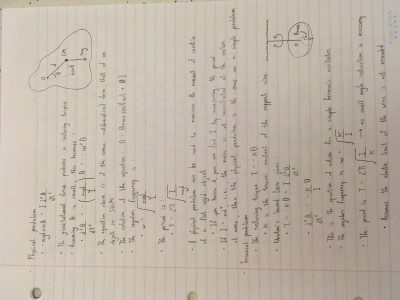 Physical pendulum
• -mgd sin θ = I d²θ/dt²
• The gravitational force produces a restoring torque
• Assuming θ is small, this becomes
• d²θ/dt² = -(mgd/I) θ = -ω²θ
• The equation above is of the same mathematical form that of an
object in SHM
• The solution of the equation: θ = θmax cos(ωt + ϕ)
• The angular frequency is
• ω = √(mgd/I)
• The period is:
• T = 2π √(I/mgd)
• A physical pendulum can be used to measure the moment of inertia
of a flat rigid object
• If you know d, you can find I by measuring the period
• If I = md², i.e., the mass is all concentrated at the center
of mass, then the physical pendulum is the same as a simple pendulum
Torsional pendulum
• The restoring torque: τ = -κθ
• κ is the torsion constant of the support wire
• Newton's Second Law gives
• τ = -κθ = I d²θ/dt²
• d²θ/dt² = -κ/I θ
• This is the equation of motion for a simple harmonic oscillator
• The angular frequency is ω = √(κ/I)
• The period is: T = 2π √(I/κ) → no small angle restriction is necessary
• Assumes the elastic limit of the wire is not exceeded
O
θ
d
CM
d sin θ
mg
O
θmax
P